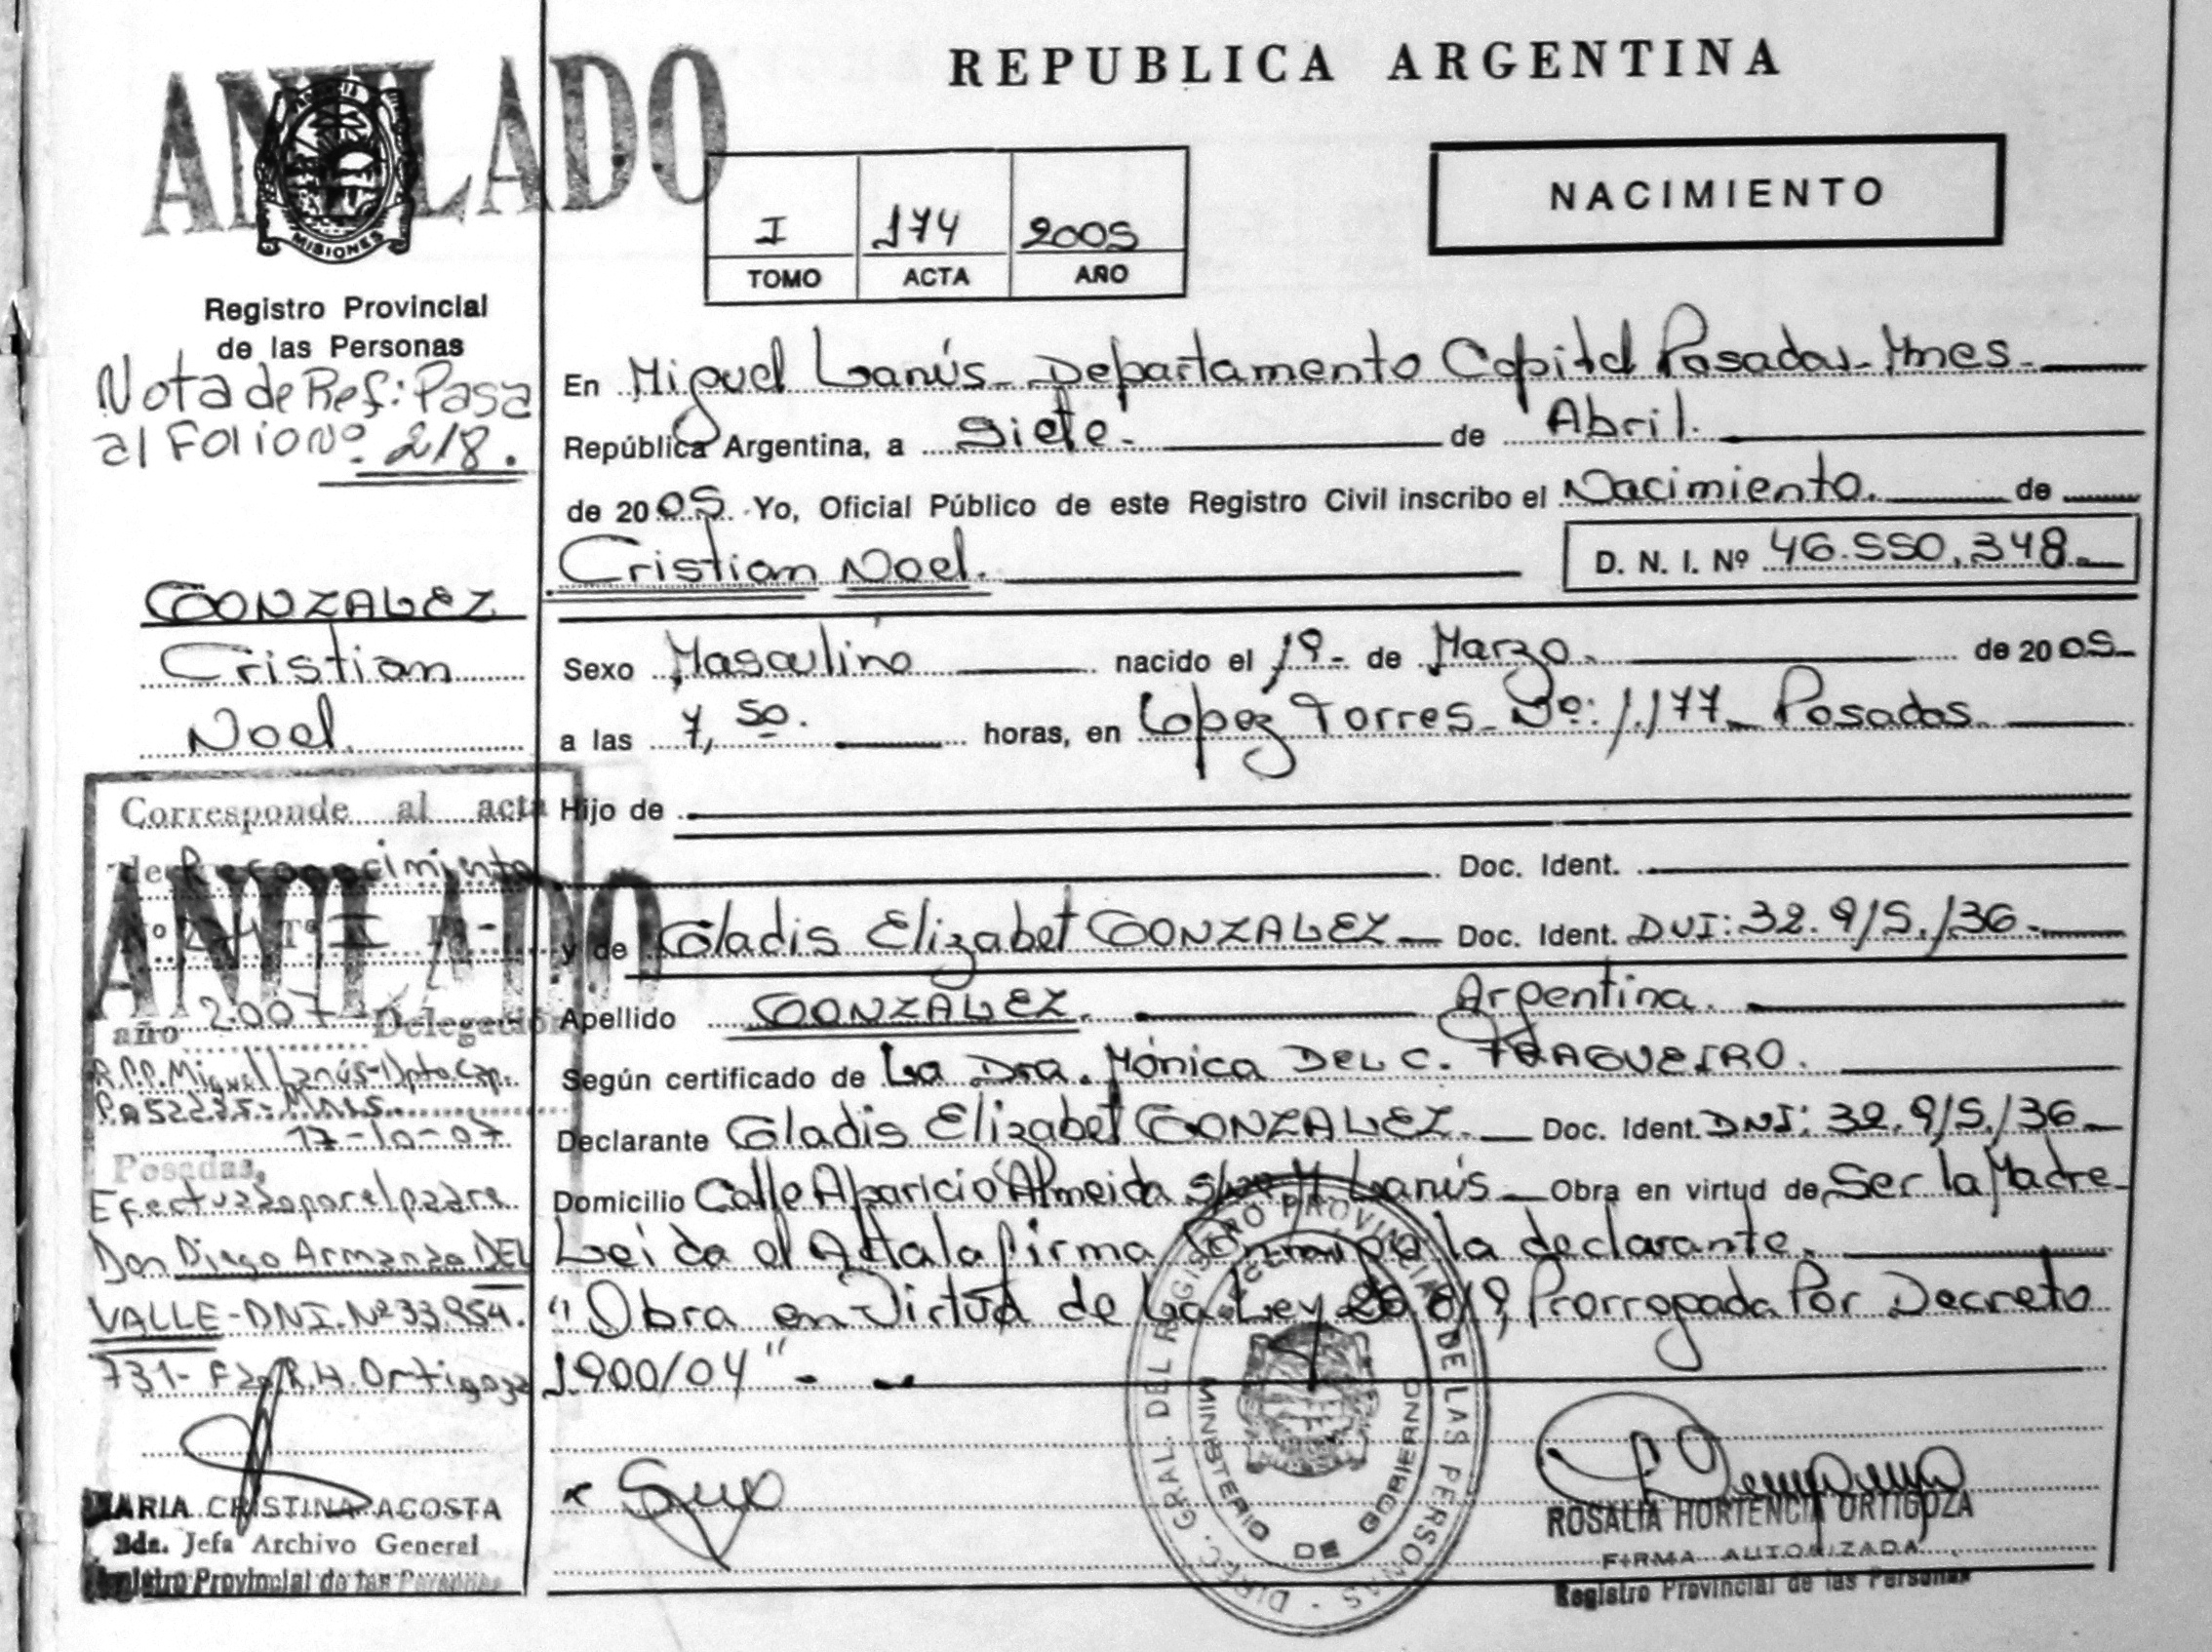 REPUBLICA ARGENTINA
ANULADO
MISIONES
NACIMIENTO
I 174 2005
TOMO ACTA AÑO
Registro Provincial
de las Personas
Nota de Ref: Pasa
al Folio Nº 218.
GONZALEZ
Cristian
Noel.
Corresponde al acta
de Reconocimiento
ANULADO
año 2.007 Delegación
R.P.P. Miguel Lanús-Dpto Cap.
17-10-07
Posadas,
Efectuado por el padre
Don Diego Armando DEL
VALLE-DNI.Nº 33.954.
731- Fdo. R.H. Ortigoza
MARIA CRISTINA ACOSTA
Jefa Archivo General
Registro Provincial de las Personas
En Miguel Lanús- Departamento Capital Posadas- Mnes.
República Argentina, a Siete- de Abril.
de 2005. Yo, Oficial Público de este Registro Civil inscribo el Nacimiento. de
Cristian Noel. D. N. I. Nº 46.550.348.-
Sexo Masculino nacido el 1º- de Marzo. de 2005-
a las 7,50. horas, en Lopez Torres- Nº: 1.177- Posadas.
Hijo de
Doc. Ident.
y de Gladis Elizabet GONZALEZ- Doc. Ident. DNI: 32.915.136-
Apellido GONZALEZ. Argentina.
Según certificado de La Dra. Mónica DEL C. FRAGUEIRO.
Declarante Gladis Elizabet GONZALEZ.- Doc. Ident. DNI: 32.915.136-
Domicilio Calle Aparicio Almeida Lanús- Obra en virtud de Ser la Madre-
Leída el Acta la firma Conmigo la declarante.
"Obra en Virtud de La Ley Prorrogada Por Decreto
1.900/04"-
DIREC. GRAL. DEL REGISTRO PROVINCIAL DE LAS PERSONAS
MINISTERIO DE GOBIERNO
ROSALIA HORTENCIA ORTIGOZA
FIRMA AUTORIZADA
Registro Provincial de las Personas